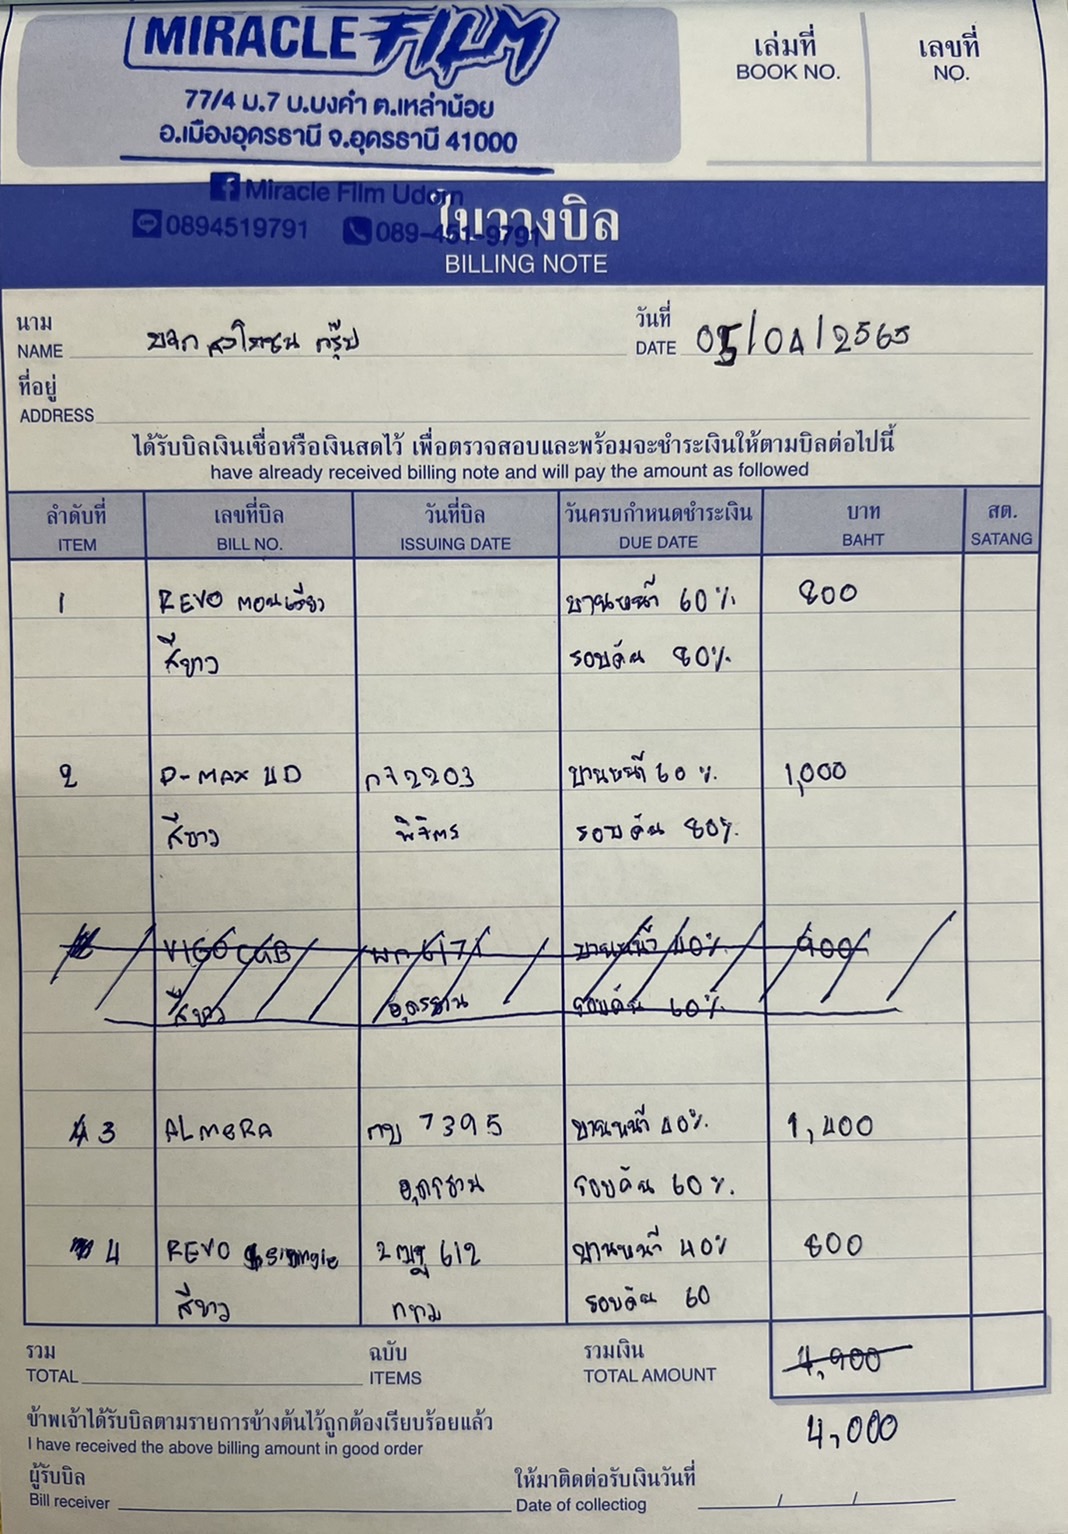 MIRACLE FILM
77/4 ม.7 บ.บงคำ ต.เหล่าน้อย
อ.เมืองอุดรธานี จ.อุดรธานี 41000
Miracle Film Udorn
0894519791 089-451-9791
เล่มที่ เลขที่
BOOK NO. NO.
ใบวางบิล
BILLING NOTE
นาม วันที่
NAME บจก กรุ๊ป DATE 05/04/2565
ที่อยู่
ADDRESS
ได้รับบิลเงินเชื่อหรือเงินสดไว้ เพื่อตรวจสอบและพร้อมจะชำระเงินให้ตามบิลต่อไปนี้
have already received billing note and will pay the amount as followed
ลำดับที่ เลขที่บิล วันที่บิล วันครบกำหนดชำระเงิน บาท สต.
ITEM BILL NO. ISSUING DATE DUE DATE BAHT SATANG
1 REVO ตอนเดียว บานหน้า 60% 800
สีขาว รอบคัน 80%
2 D-MAX 4D 2203 บานหน้า 60% 1,000
สีขาว พิจิตร รอบคัน 80%
VIGO CAB 6171 บานหน้า 40% 900
สีขาว อุดรธานี รอบคัน 60%
3 ALMERA กบ 7395 บานหน้า 40% 1,400
อุดรธานี รอบคัน 60%
4 REVO single 612 บานหน้า 40% 800
สีขาว กทม รอบคัน 60
รวม ฉบับ รวมเงิน
TOTAL ITEMS TOTAL AMOUNT 4,900
ข้าพเจ้าได้รับบิลตามรายการข้างต้นไว้ถูกต้องเรียบร้อยแล้ว
I have received the above billing amount in good order
4,000
ผู้รับบิล ให้มาติดต่อรับเงินวันที่
Bill receiver Date of collectiog / /